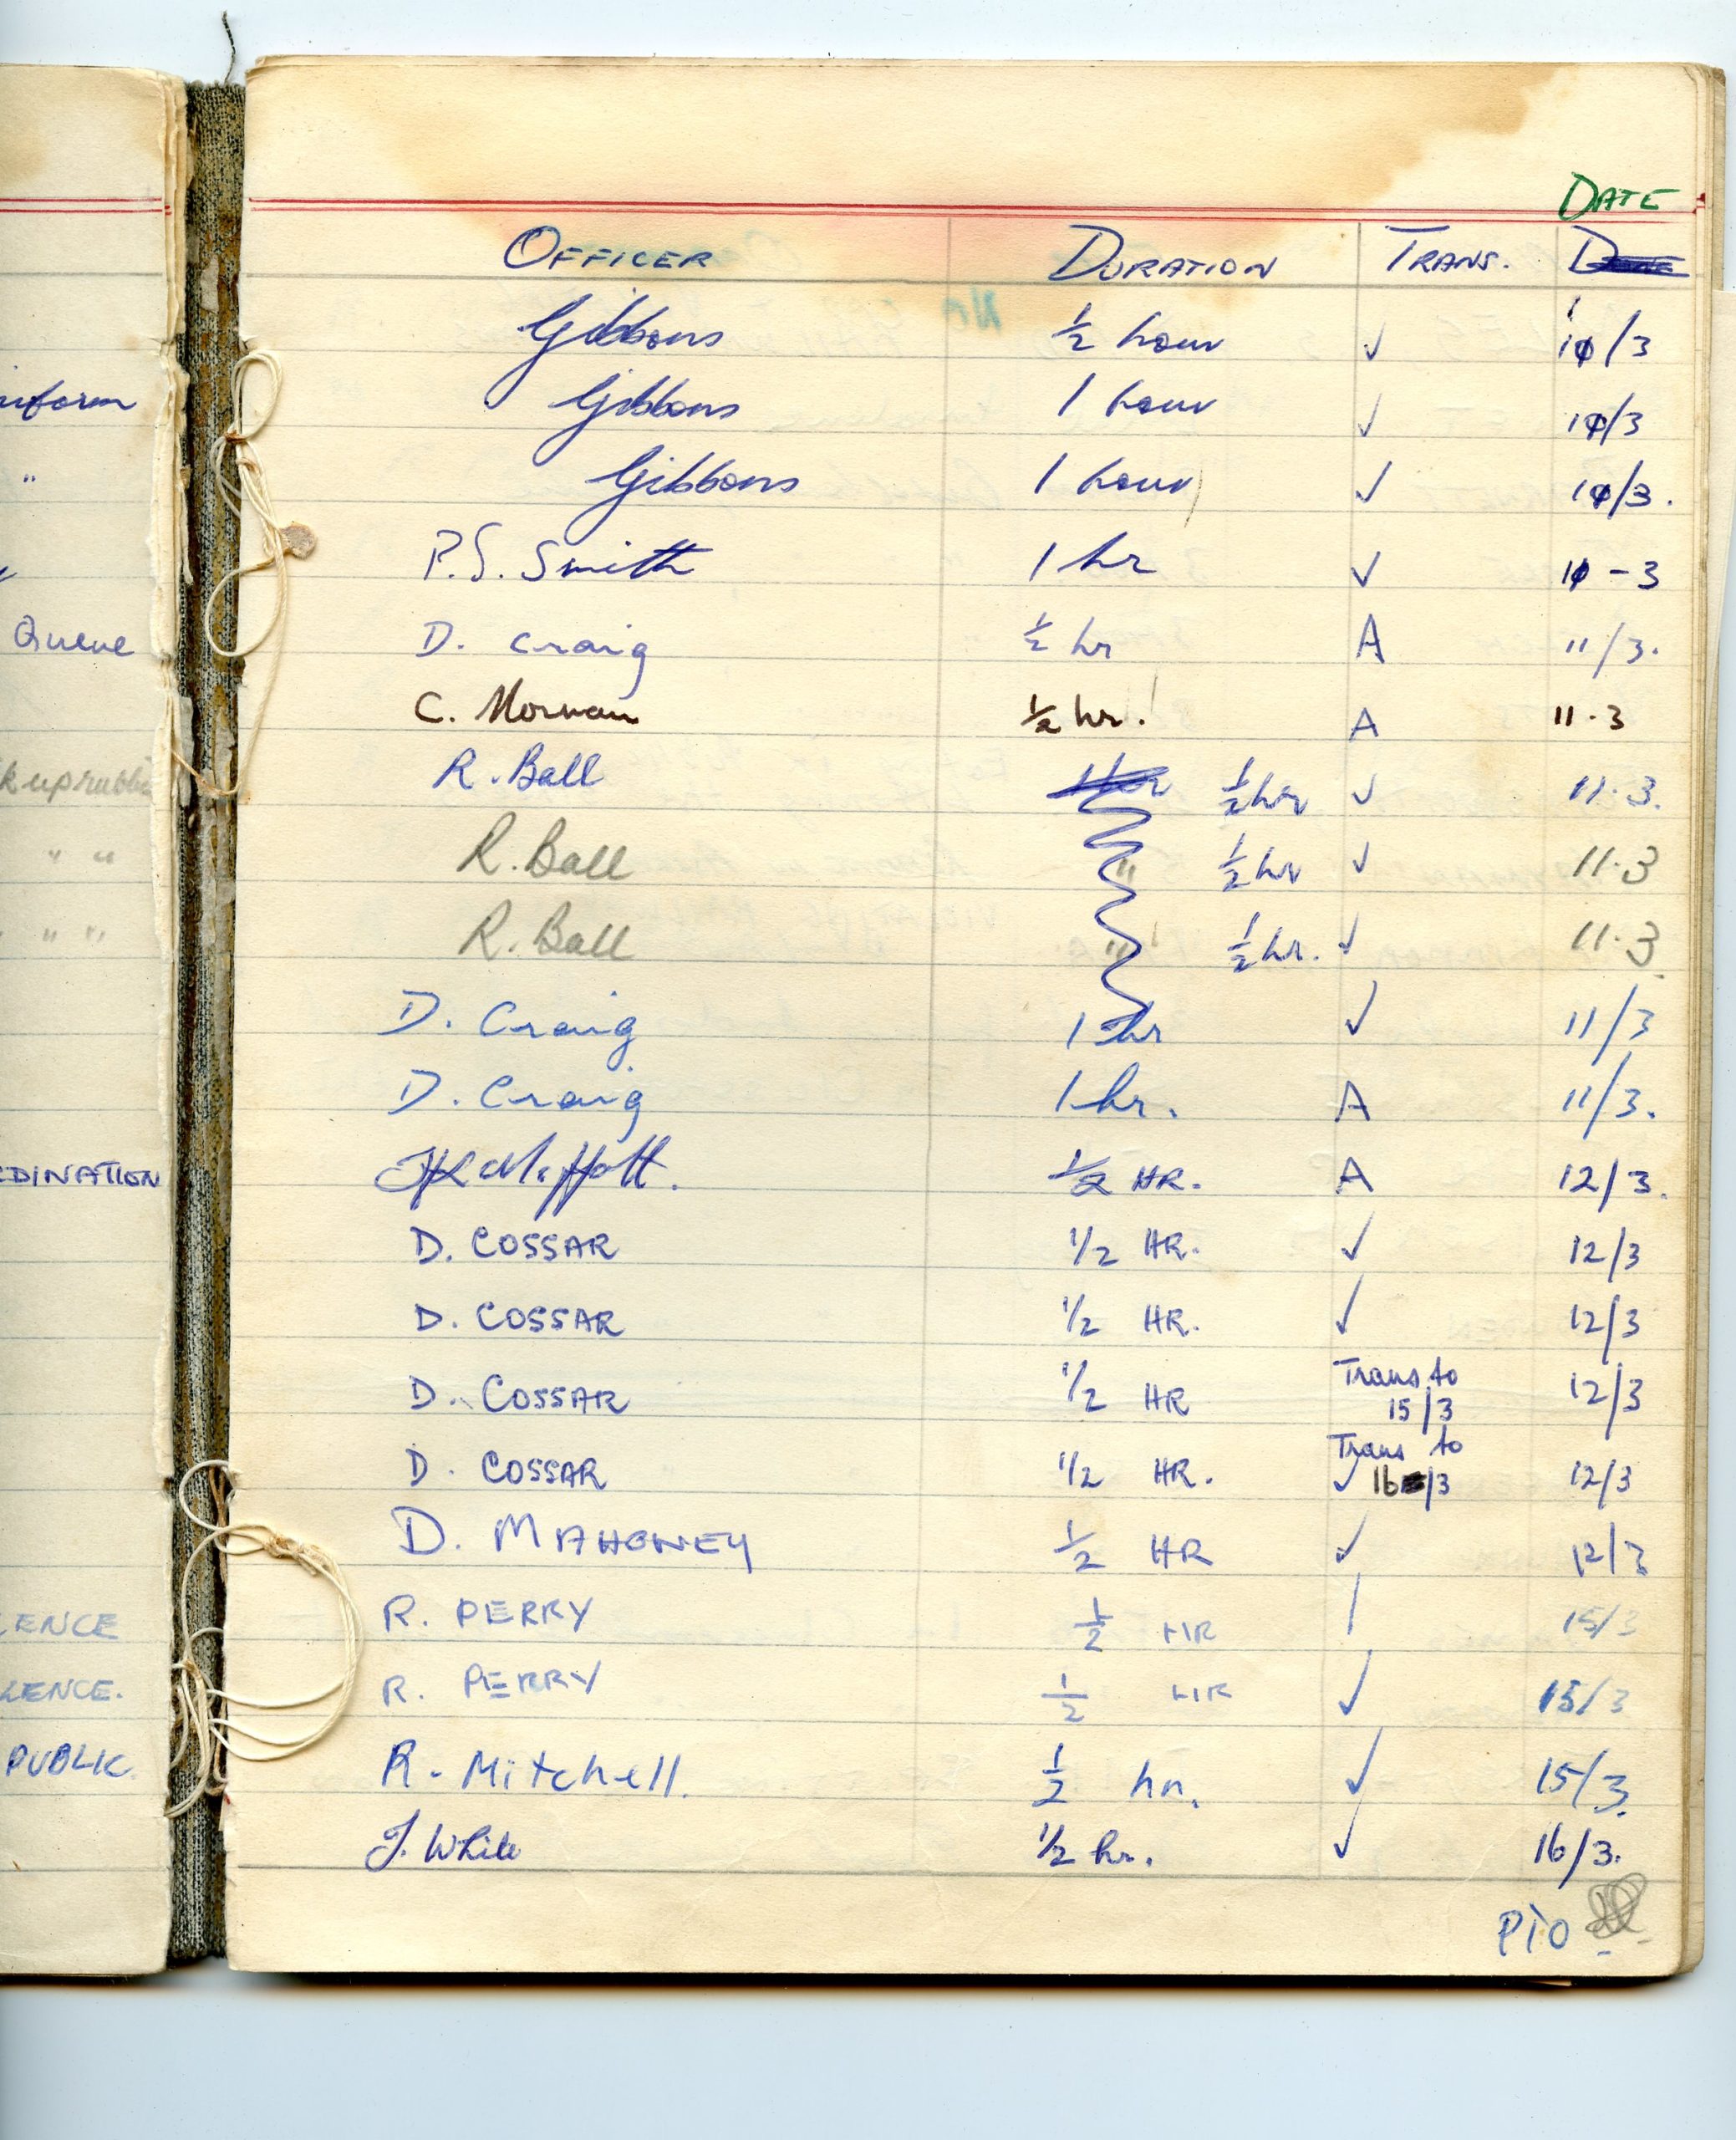 DATE
OFFICER DURATION TRANS.
Gibbons ½ hour ✓ 10/3
iform Gibbons 1 hour ✓ 10/3
" Gibbons 1 hour ✓ 10/3.
P.S. Smith 1 hr ✓ 10-3
Queue D. Craig ½ hr A 11/3.
C. Morman ½ hr. A 11.3
k up rubbi R. Ball 1 hr ½ hr ✓ 11.3.
" " R. Ball " ½ hr ✓ 11.3
" " R. Ball " ½ hr. ✓ 11.3.
D. Craig 1 hr ✓ 11/3
D. Craig 1 hr. A 11/3.
DINATION Moffatt. ½ HR. A 12/3.
D. COSSAR ½ HR. ✓ 12/3
D. COSSAR ½ HR. ✓ 12/3
D. COSSAR ½ HR Trans to 15/3 12/3
D. COSSAR ½ HR. Trans to ✓ 16/3 12/3
D. MAHONEY ½ HR ✓ 12/3
LENCE R. PERRY ½ HR / 15/3
LENCE. R. PERRY ½ HR ✓ 15/3
PUBLIC. R. Mitchell. ½ hr. ✓ 15/3.
J. White ½ hr. ✓ 16/3.
PTO